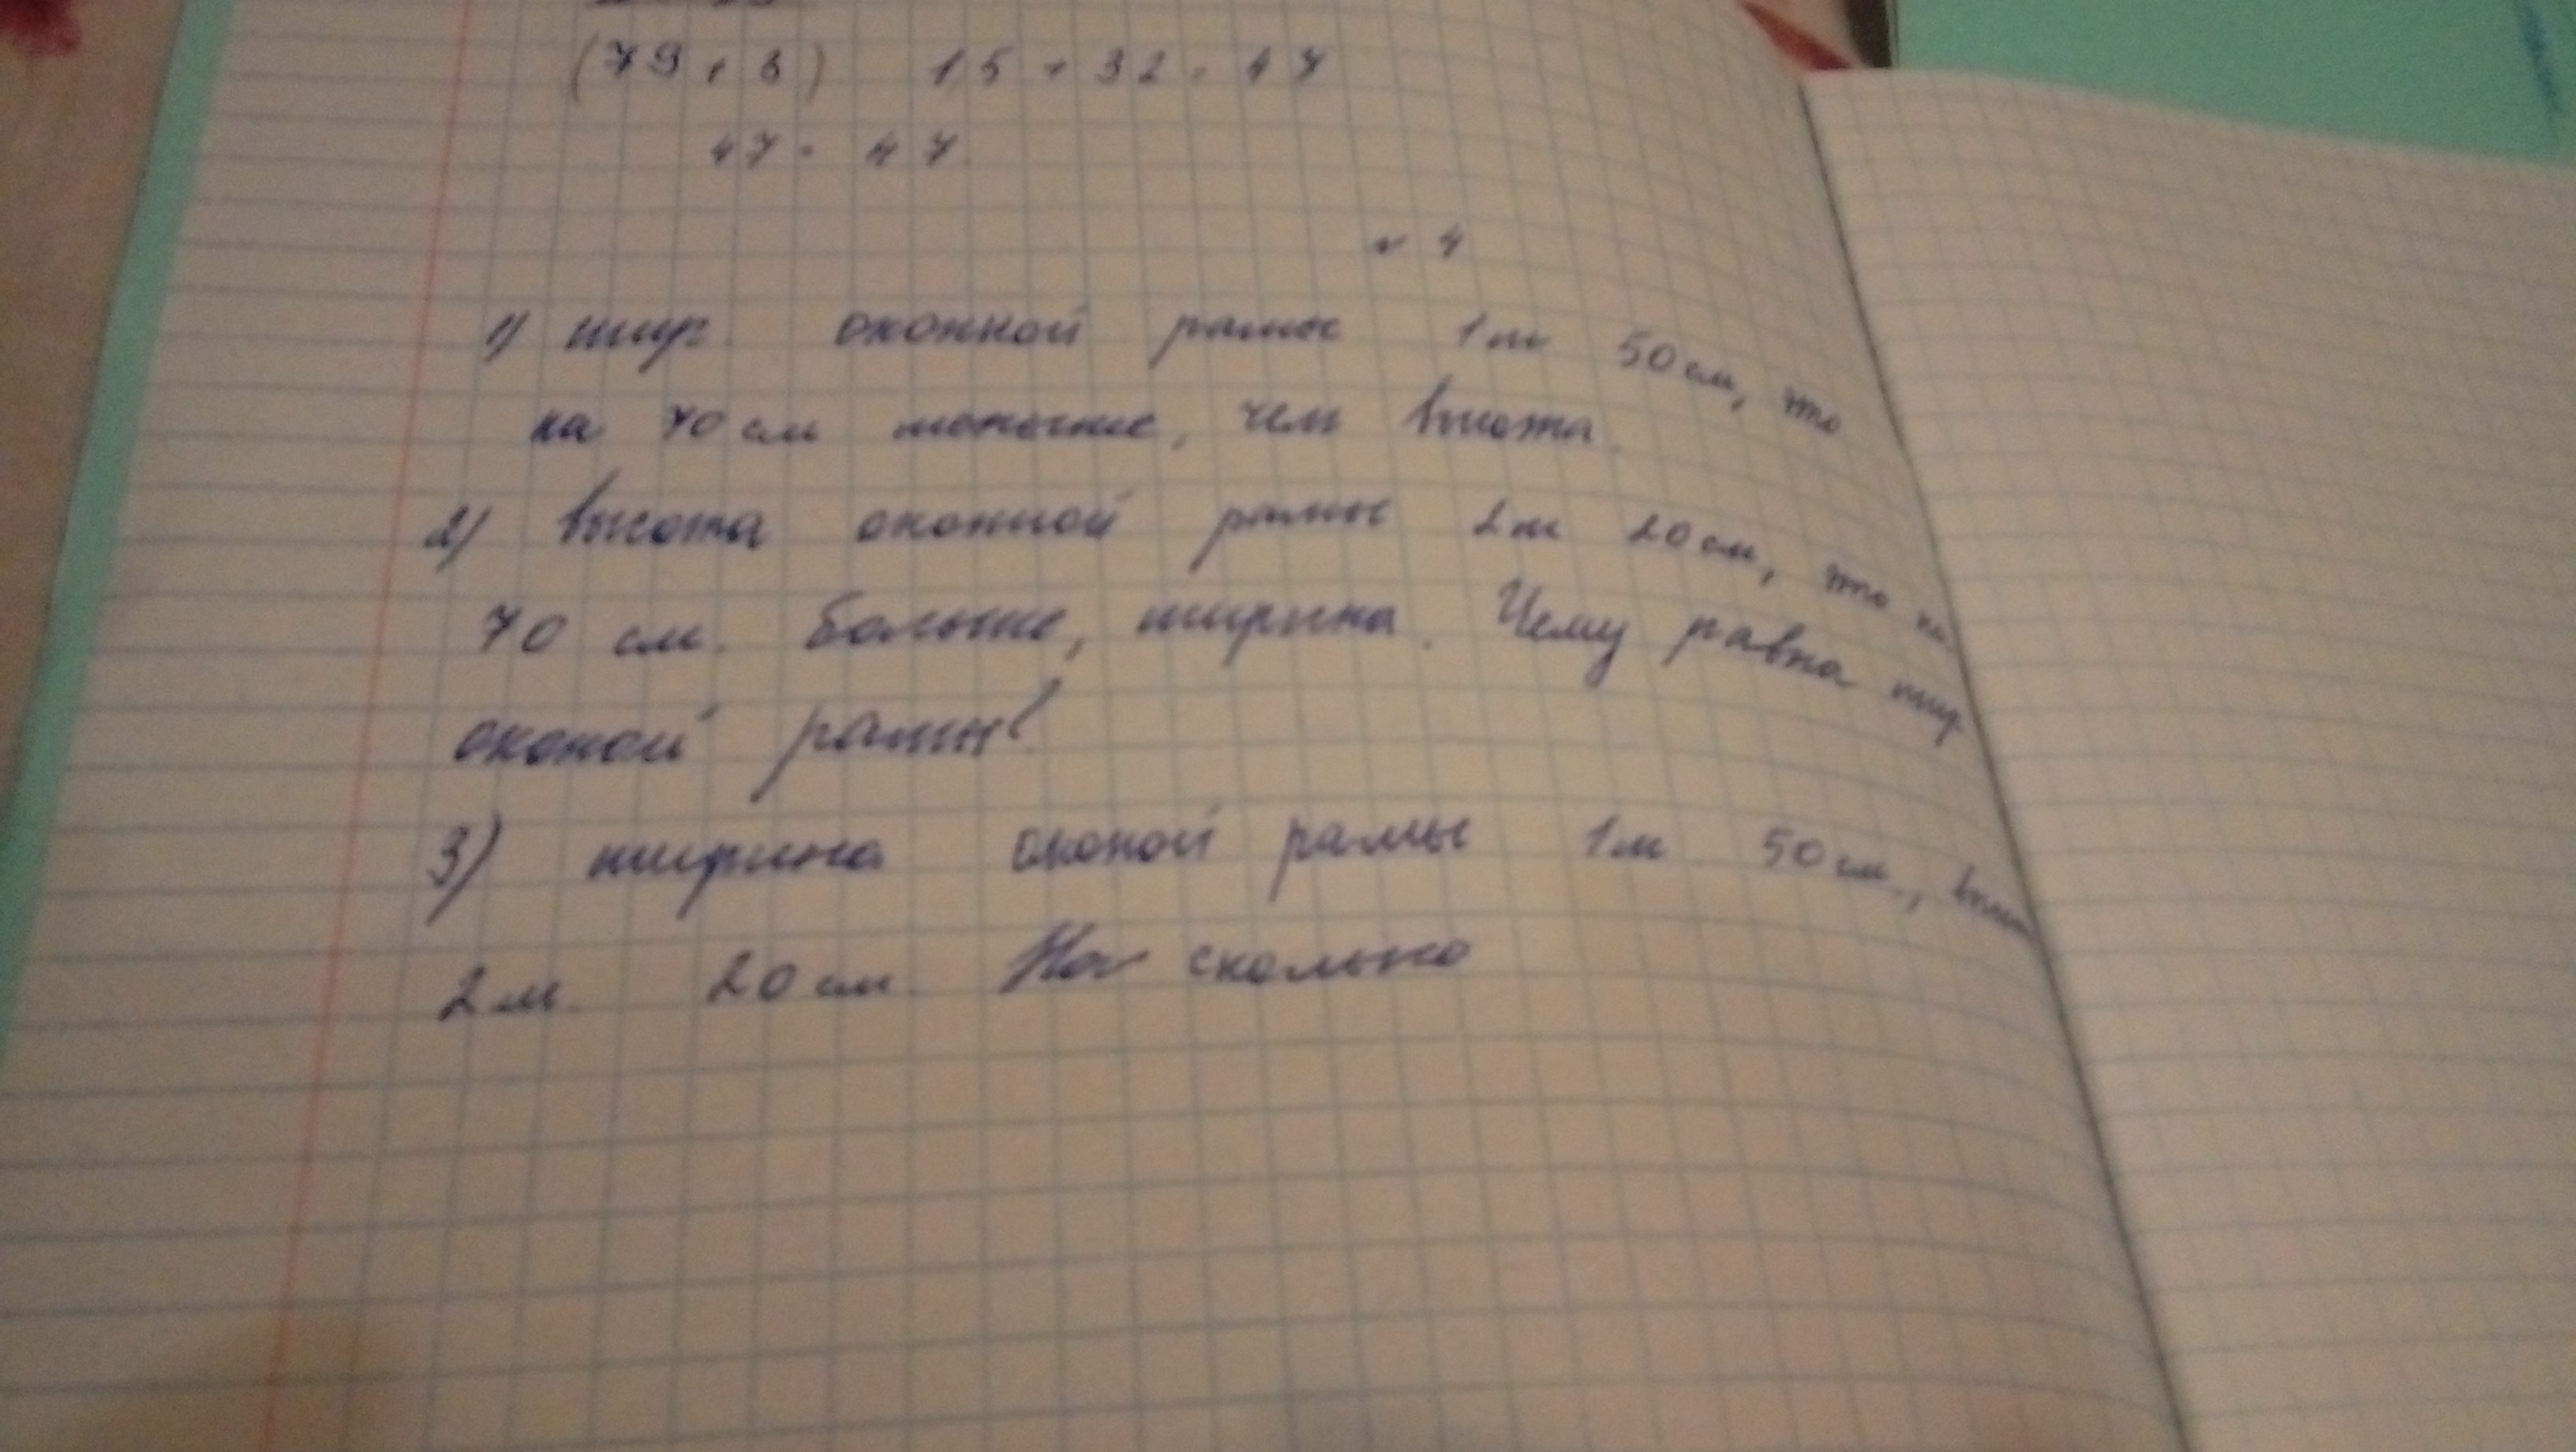 (79 + 3) 15 + 32 = 47
47 = 47
№ 4
1) шир. оконной рамы 1м 50см, это
на 70см меньше, чем высота.
2) высота оконной рамы 2м 20см, это на
70 см. больше, ширина. Чему равна шир
оконой рамы?
3) ширина оконой рамы 1м 50см.,
2м. 20см. На сколько